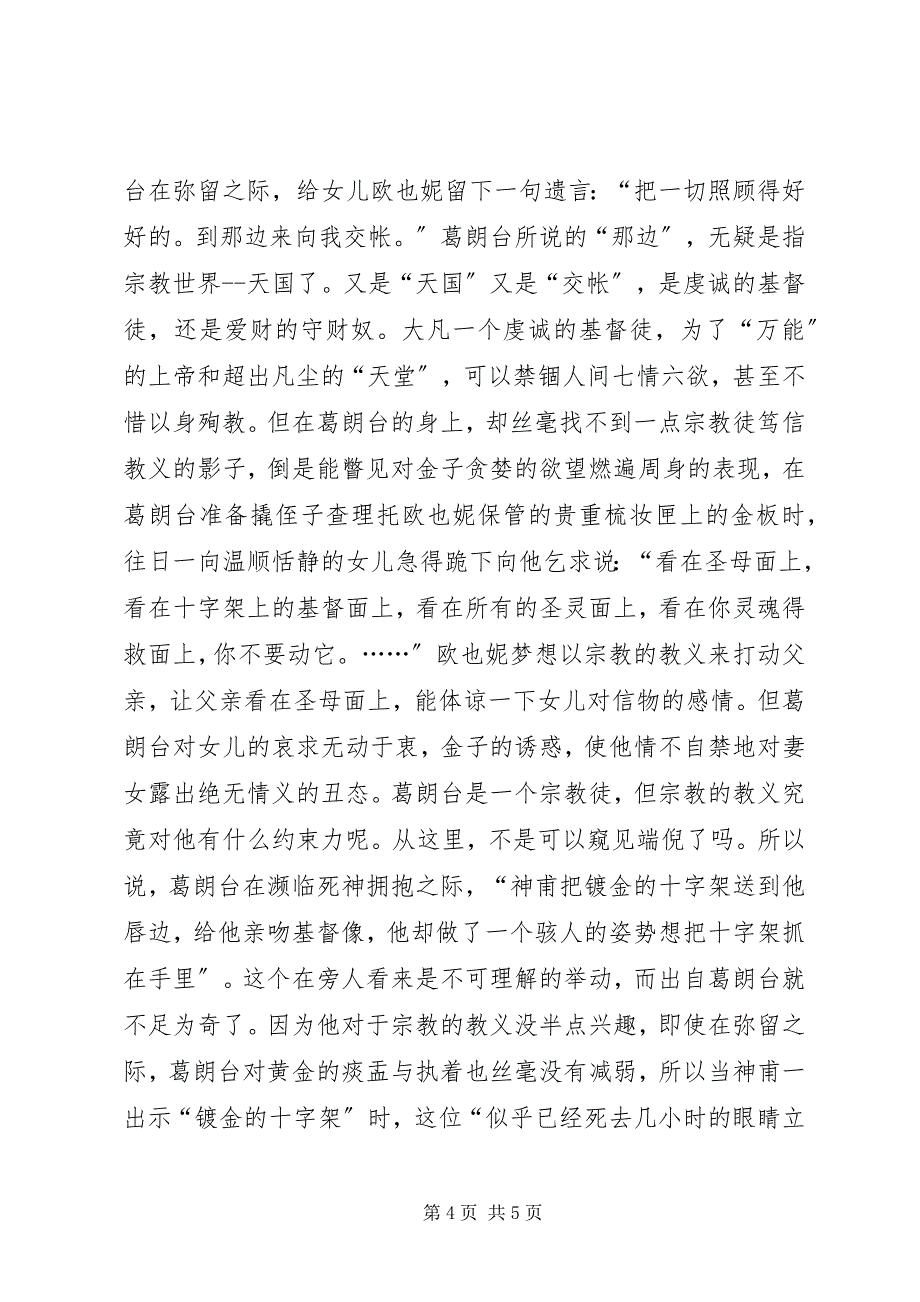 台在弥留之际，给女儿欧也妮留下一句遗言：“把一切照顾得好
好的。到那边来向我交帐。〞葛朗台所说的“那边〞，无疑是指
宗教世界--天国了。又是“天国〞又是“交帐〞，是虔诚的基督
徒，还是爱财的守财奴。大凡一个虔诚的基督徒，为了“万能〞
的上帝和超出凡尘的“天堂〞，可以禁锢人间七情六欲，甚至不
惜以身殉教。但在葛朗台的身上，却丝毫找不到一点宗教徒笃信
教义的影子，倒是能瞥见对金子贪婪的欲望燃遍周身的表现，在
葛朗台准备撬侄子查理托欧也妮保管的贵重梳妆匣上的金板时，
往日一向温顺恬静的女儿急得跪下向他乞求说：“看在圣母面上，
看在十字架上的基督面上，看在所有的圣灵面上，看在你灵魂得
救面上，你不要动它。……〞欧也妮梦想以宗教的教义来打动父
亲，让父亲看在圣母面上，能体谅一下女儿对信物的感情。但葛
朗台对女儿的哀求无动于衷，金子的诱惑，使他情不自禁地对妻
女露出绝无情义的丑态。葛朗台是一个宗教徒，但宗教的教义究
竟对他有什么约束力呢。从这里，不是可以窥见端倪了吗。所以
说，葛朗台在濒临死神拥抱之际，“神甫把镀金的十字架送到他
唇边，给他亲吻基督像，他却做了一个骇人的姿势想把十字架抓
在手里〞。这个在旁人看来是不可理解的举动，而出自葛朗台就
不足为奇了。因为他对于宗教的教义没半点兴趣，即使在弥留之
际，葛朗台对黄金的痰盂与执着也丝毫没有减弱，所以当神甫一
出示“镀金的十字架〞时，这位“似乎已经死去几小时的眼睛立
第 4 页 共 5 页